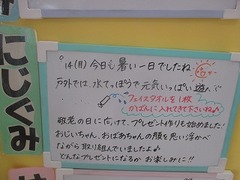 にじぐみ
9/14(月) 今日も暑い一日でしたね
戸外では、水でっぽうで元気いっぱい遊び
フェイスタオルを1枚
かばんに入れてきて下さいね♪
敬老の日に向けて、プレゼント作りも始めました
おじいちゃん、おばあちゃんの顔を思い浮かべ
ながら取り組んでいましたよ♪
どんなプレゼントになるか お楽しみに!!